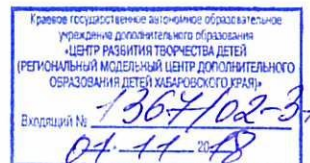 Краевое государственное автономное образовательное
учреждение дополнительного образования
«ЦЕНТР РАЗВИТИЯ ТВОРЧЕСТВА ДЕТЕЙ
(РЕГИОНАЛЬНЫЙ МОДЕЛЬНЫЙ ЦЕНТР ДОПОЛНИТЕЛЬНОГО
ОБРАЗОВАНИЯ ДЕТЕЙ ХАБАРОВСКОГО КРАЯ)»
Входящий № 1367/02-3
01 11 2018